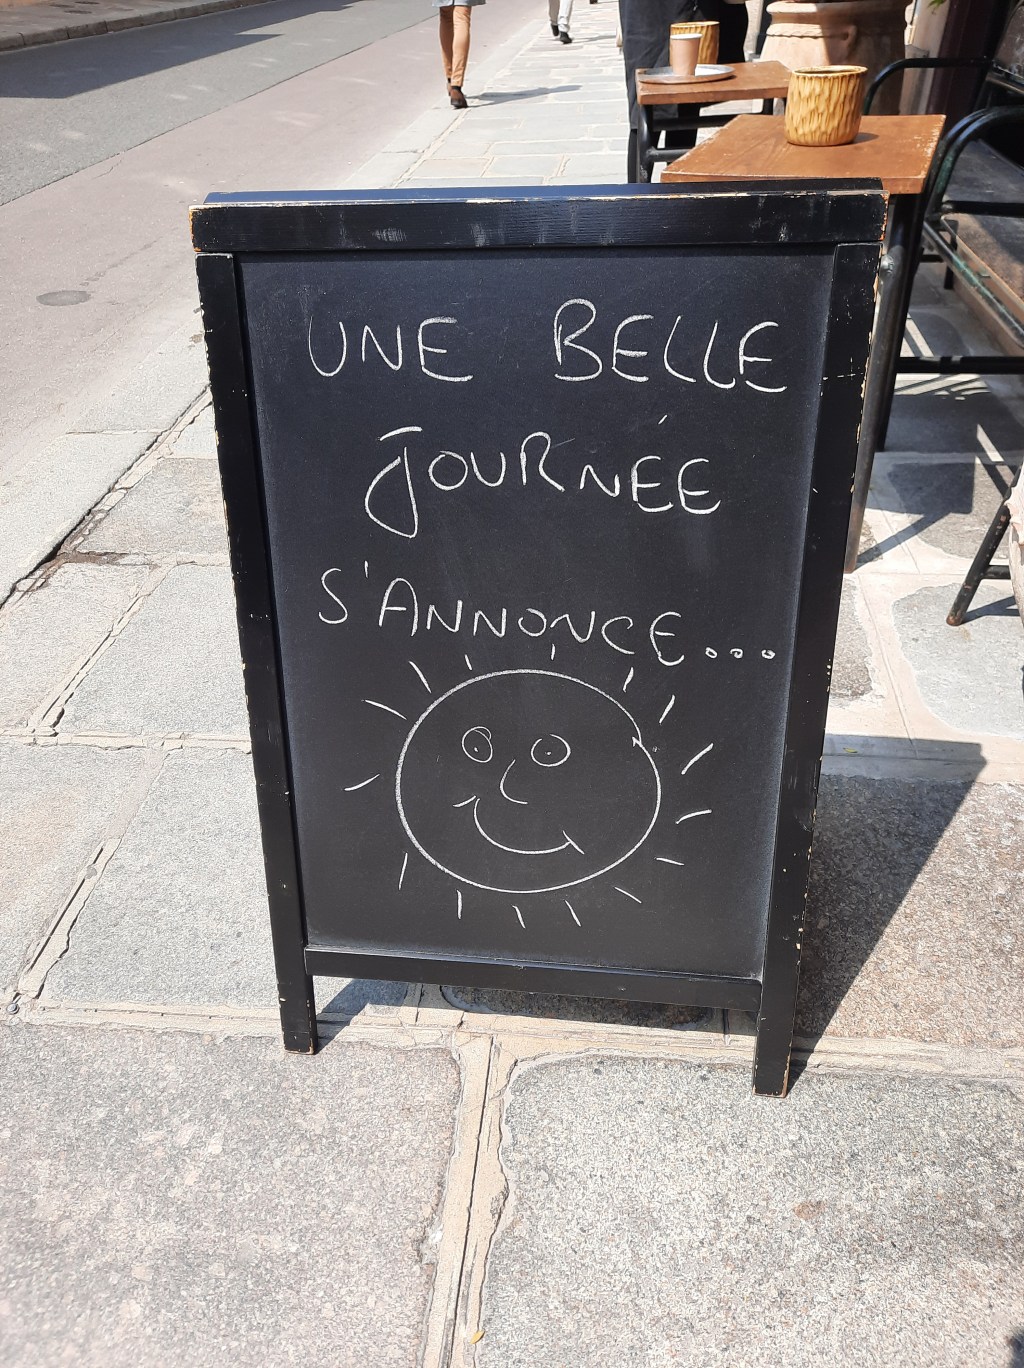 UNE BELLE
JOURNÉE
S'ANNONCE...